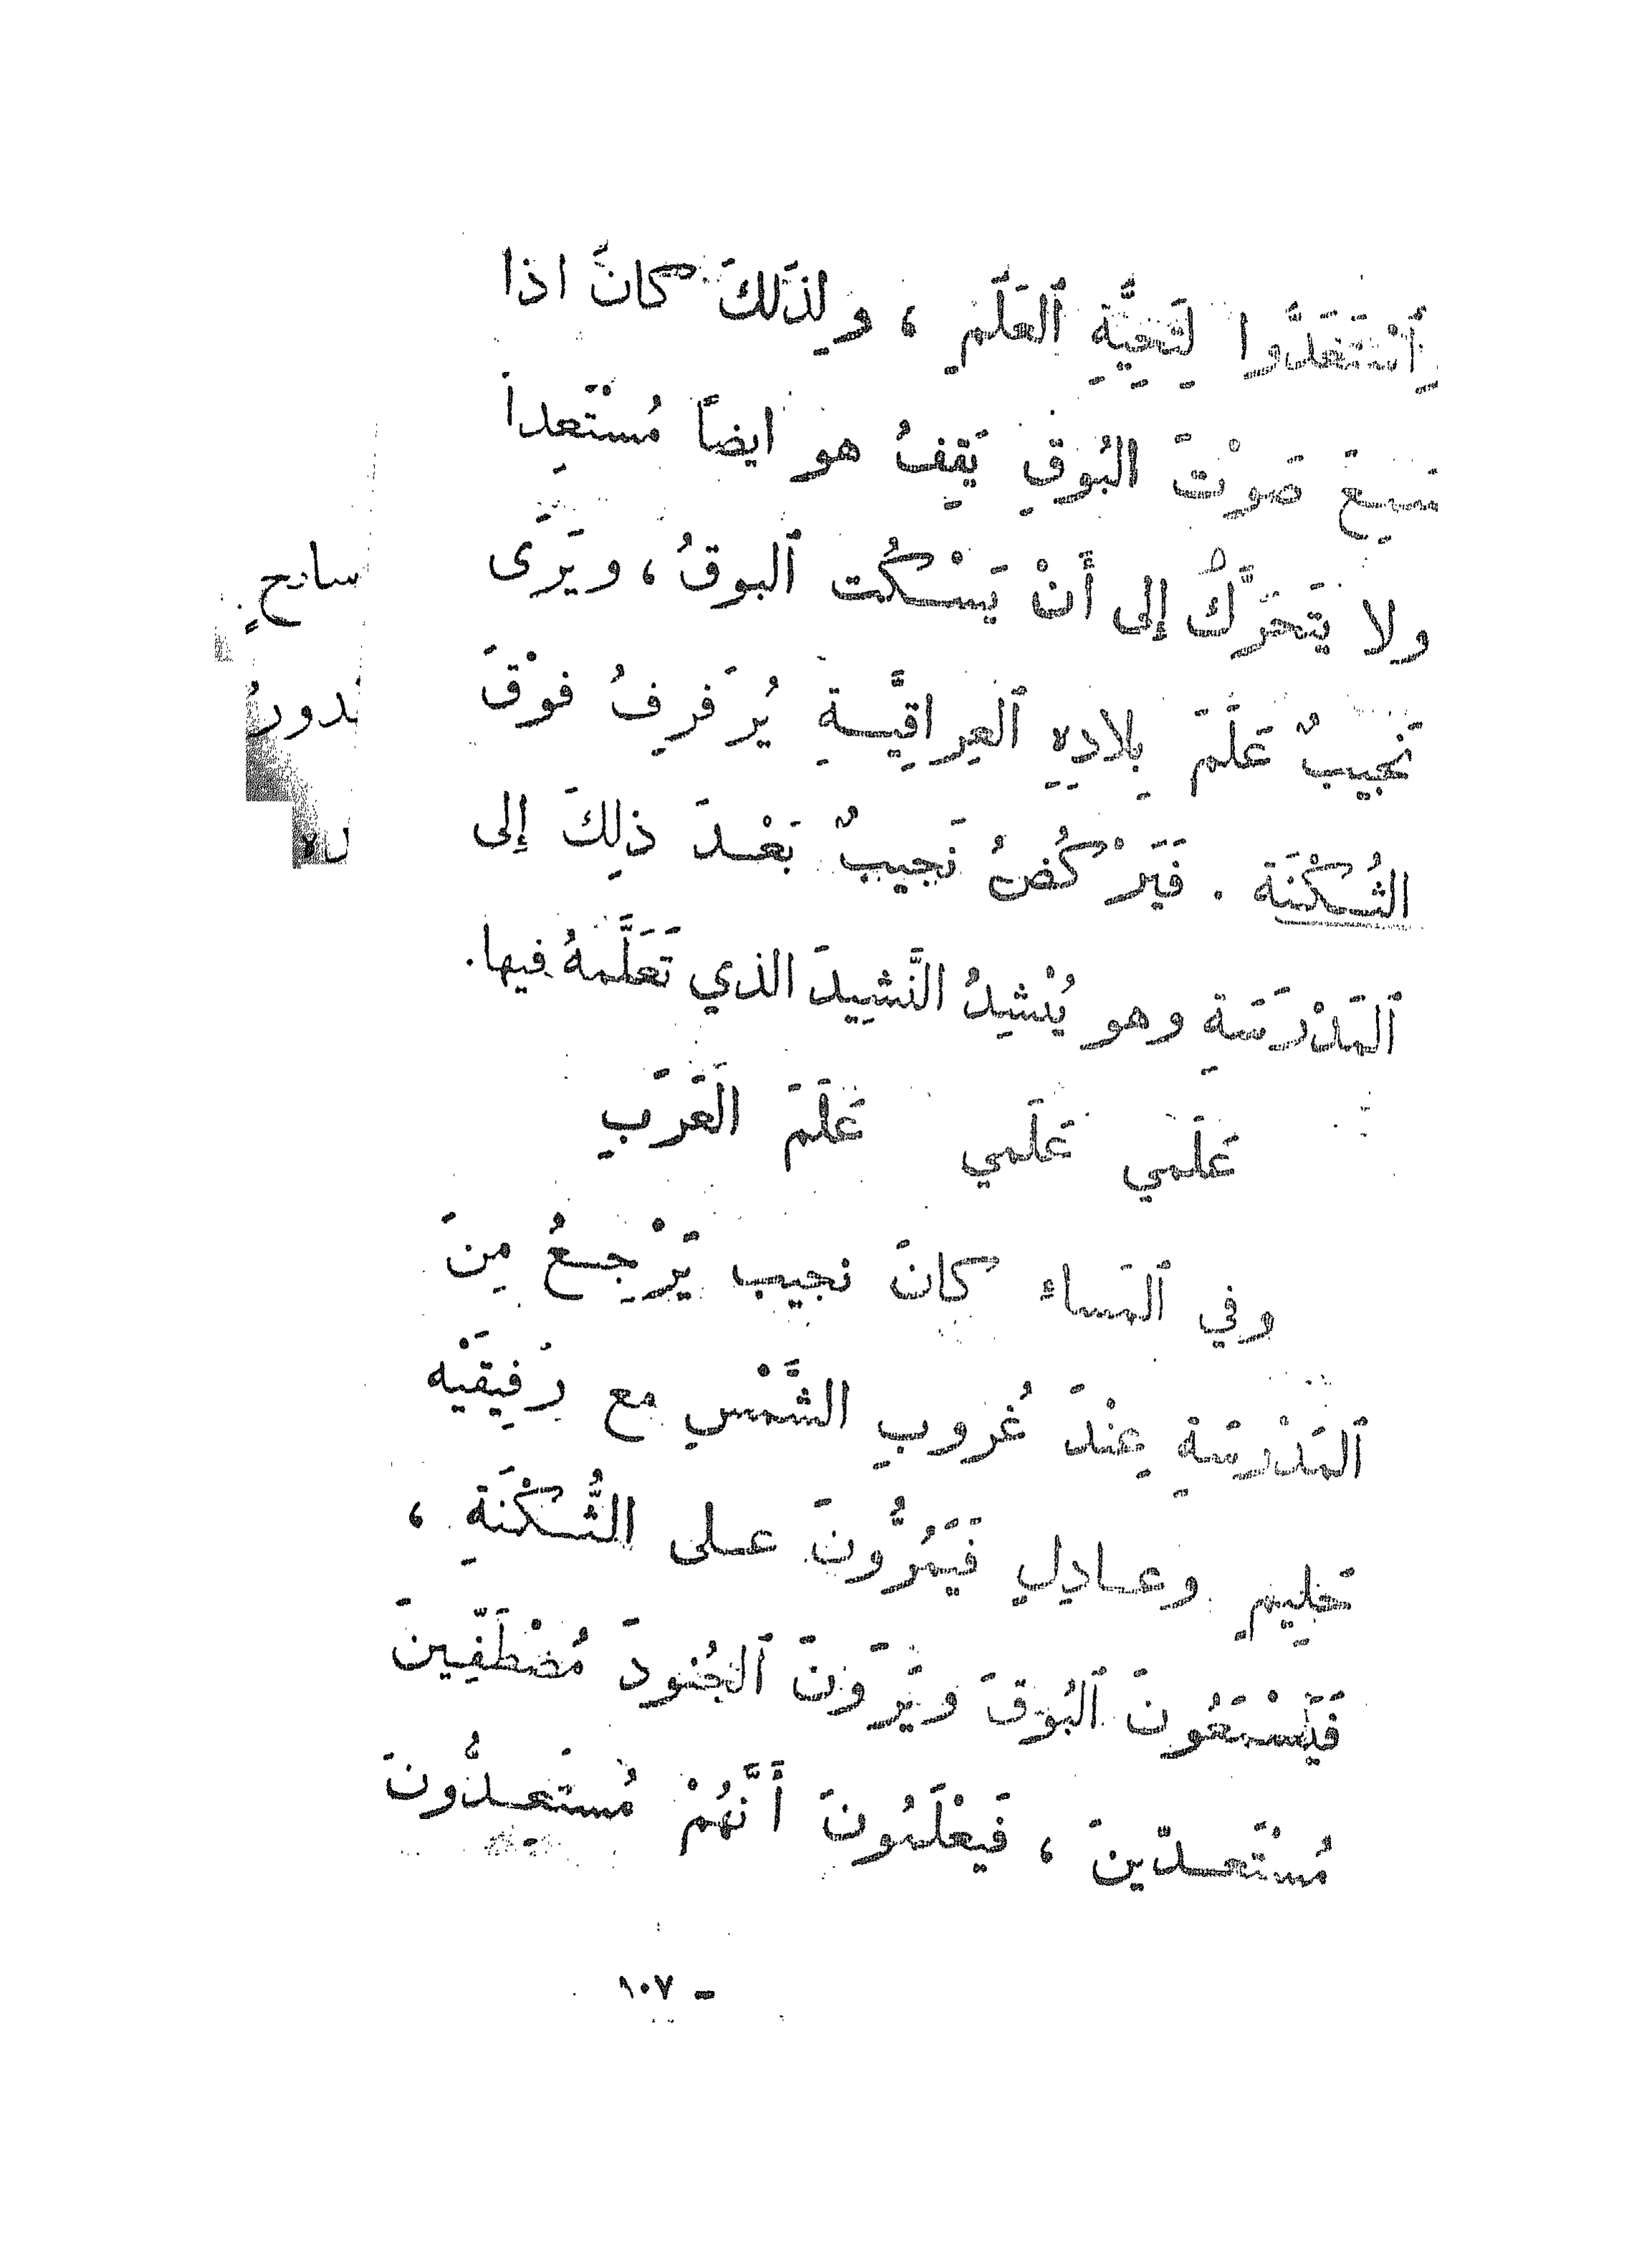 اِسْتَعَدُّوا لِتَحِيَّةِ ٱلعَلَمِ ، ولِذَلكَ كانَ اذا
سَمِعَ صَوْتَ البُوقِ يَقِفُ هو ايضاً مُسْتَعِداً
ولا يَتَحَرَّكُ إلى أَنْ يَسْكُت ٱلبوقُ ، ويَرَى
نَجيبٌ عَلَمَ بِلادِهِ ٱلعِراقِيَّةِ يُرَفرِفُ فوْقَ
الثُكْنَة . فَيَرْكُضُ نَجيبٌ بَعْدَ ذلِكَ إلى
ٱلمَدْرَسَةِ وهو يُنْشِدُ النَّشِيدَ الذي تَعَلَّمهُ فيها.
عَلَمي عَلَمي عَلَمَ العَرَبِ
وفي ٱلمَساء كانَ نجيب يَرْجِعُ مِنَ
ٱلمَدْرسَةِ عِنْدَ غُروبِ الشَّمْسِ مع رَفِيقَيْه
حَلِيمِ وعادِلِ فَيَمُرُّونَ على الثُّكْنَةِ ،
فَيَسْمَعُونَ ٱلبُوقَ ويَرَوْنَ ٱلجُنودَ مُصْطَفِّينَ
مُسْتَعدّينَ ، فَيَعْلَمُونَ أَنَّهُمْ مُسْتَعِدُّونَ
- ١٠٧